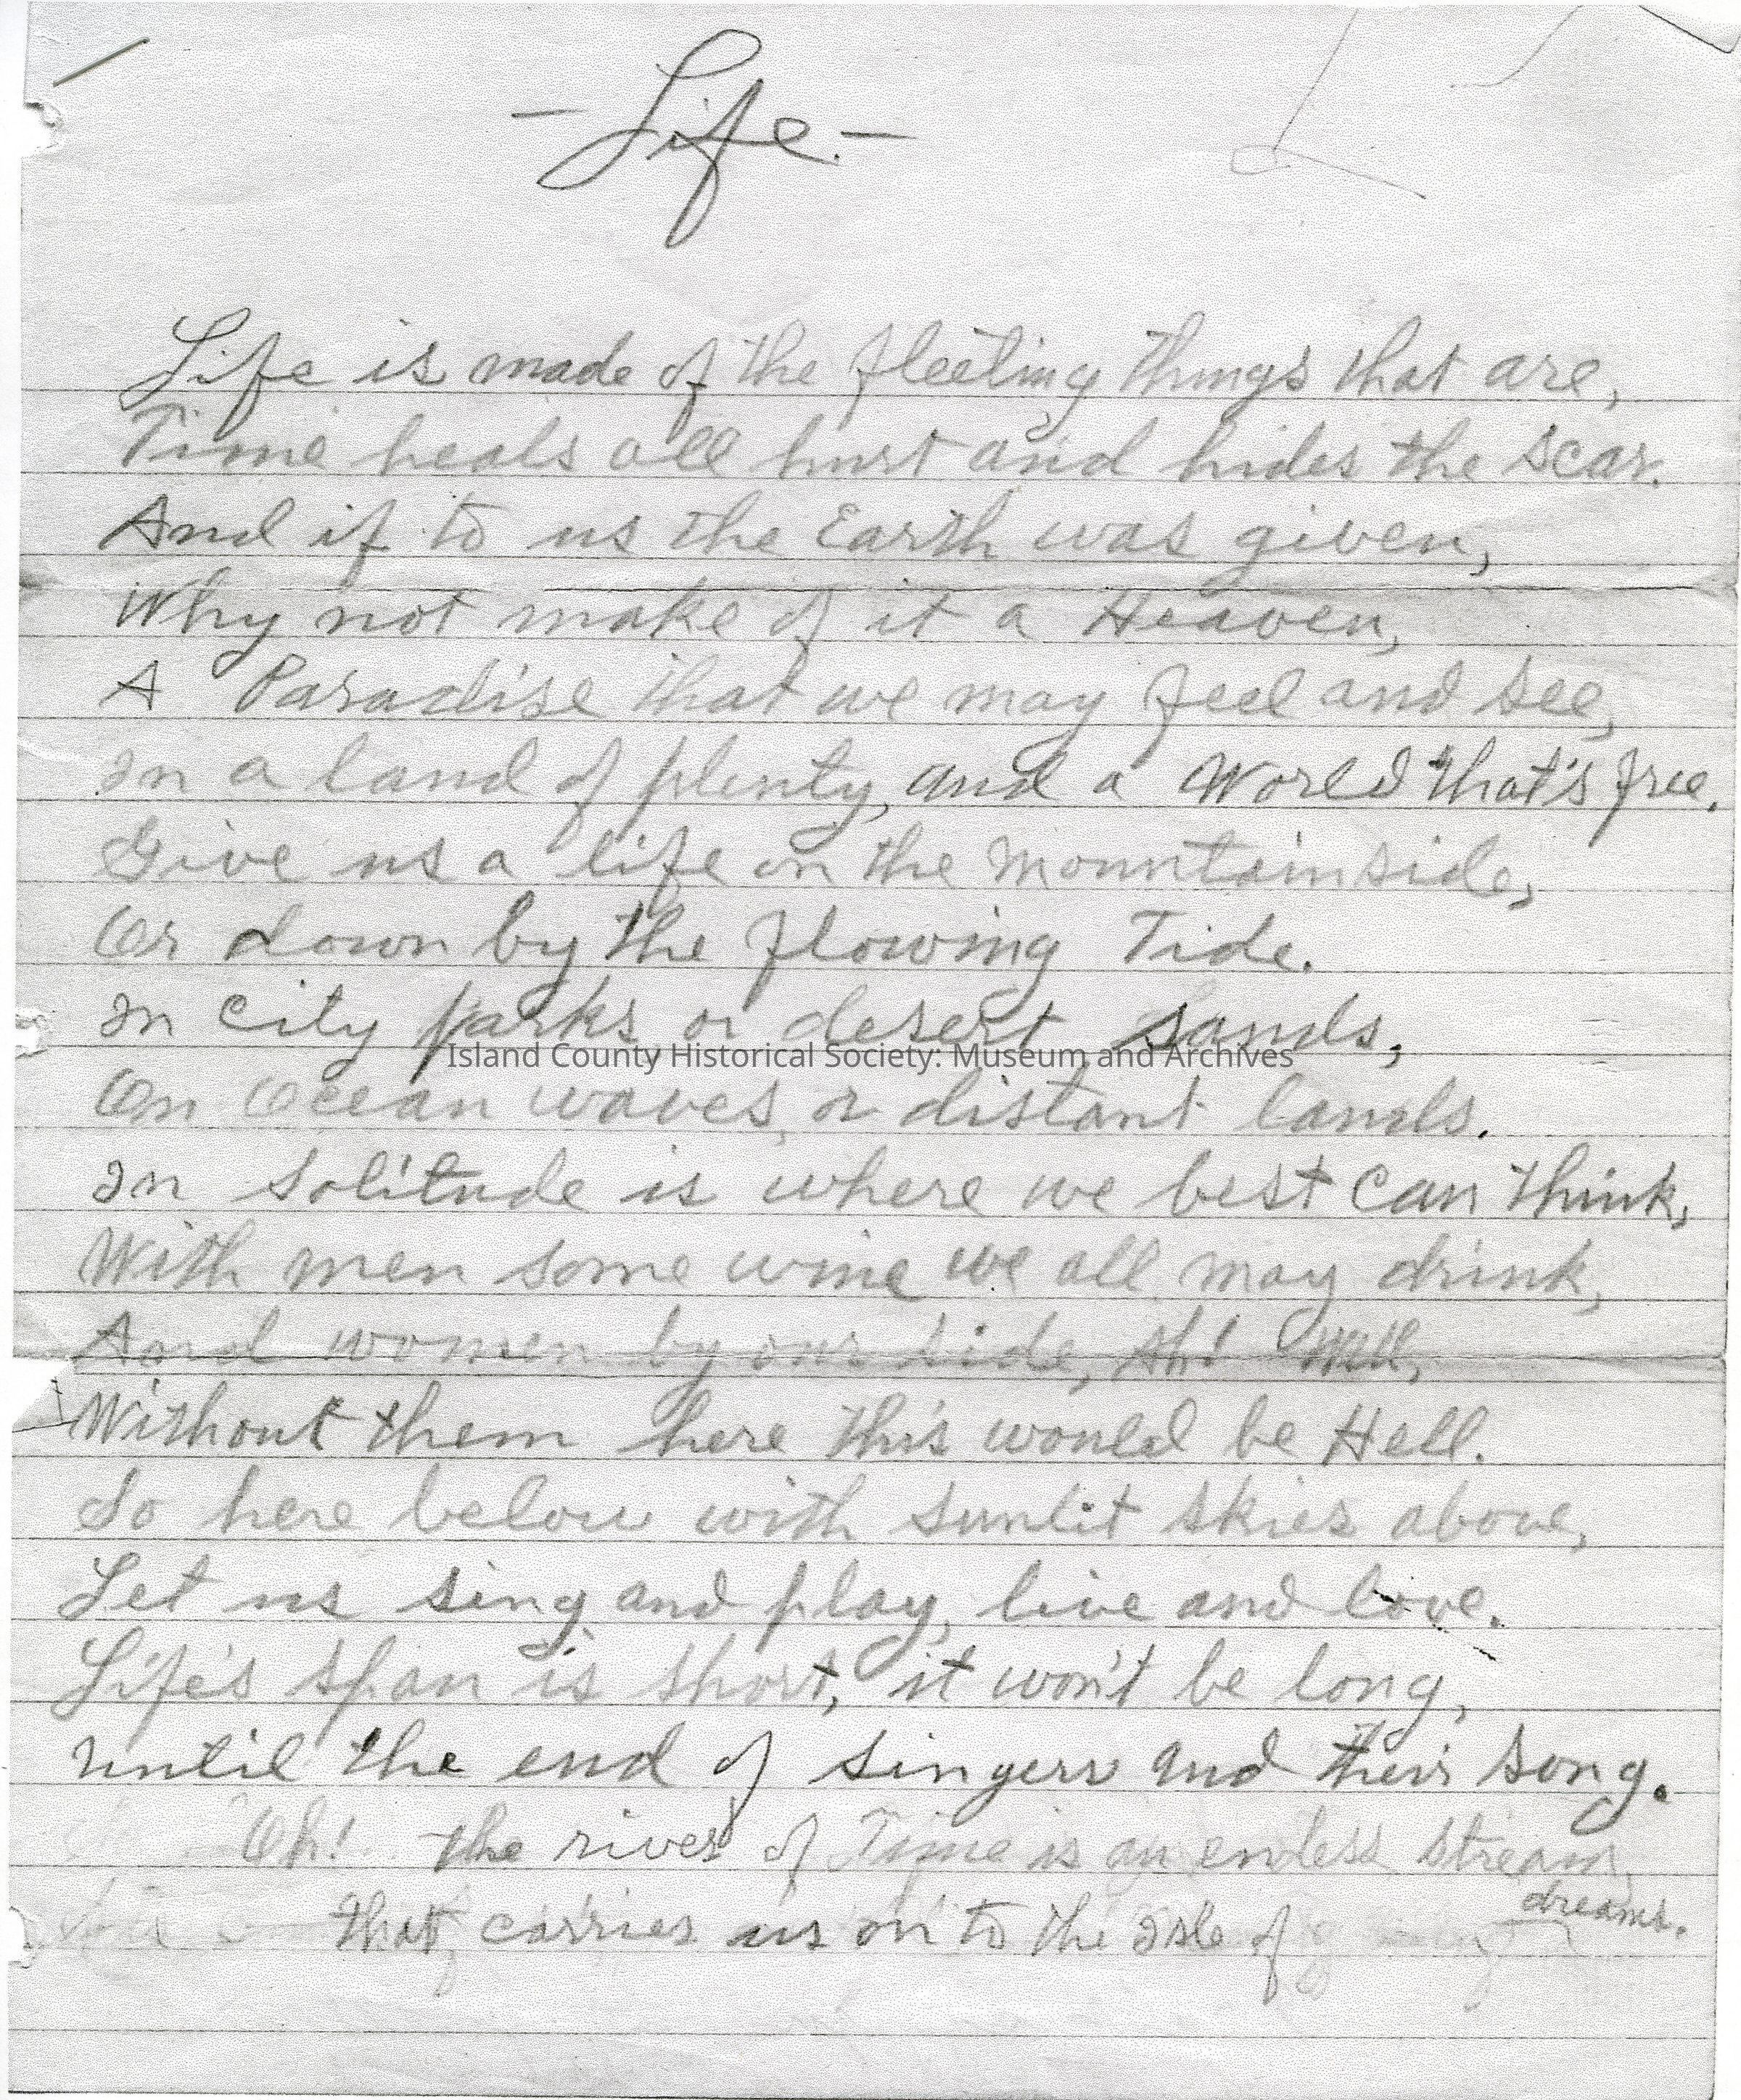 - Life. -
Life is made of the fleeting things that are,
Time heals all hurt and hides the scar.
And if to us the Earth was given,
Why not make of it a Heaven,
A Paradise that we may feel and see,
In a land of plenty, and a World that's free.
Give us a life on the Mountainside,
Or down by the flowing Tide.
In City parks or desert sands,
Island County Historical Society: Museum and Archives
On Ocean waves, or distant lands.
In Solitude is where we best can think,
With men some wine we all may drink,
And women by our side, Ah! Well,
Without them here this would be Hell.
So here below with sunlit skies above,
Let us sing and play, live and love.
Life's span is short, it won't be long,
until the end of singers and their song.
Oh! the river of Time is an endless stream,
that carries us on to the Isle of dreams.